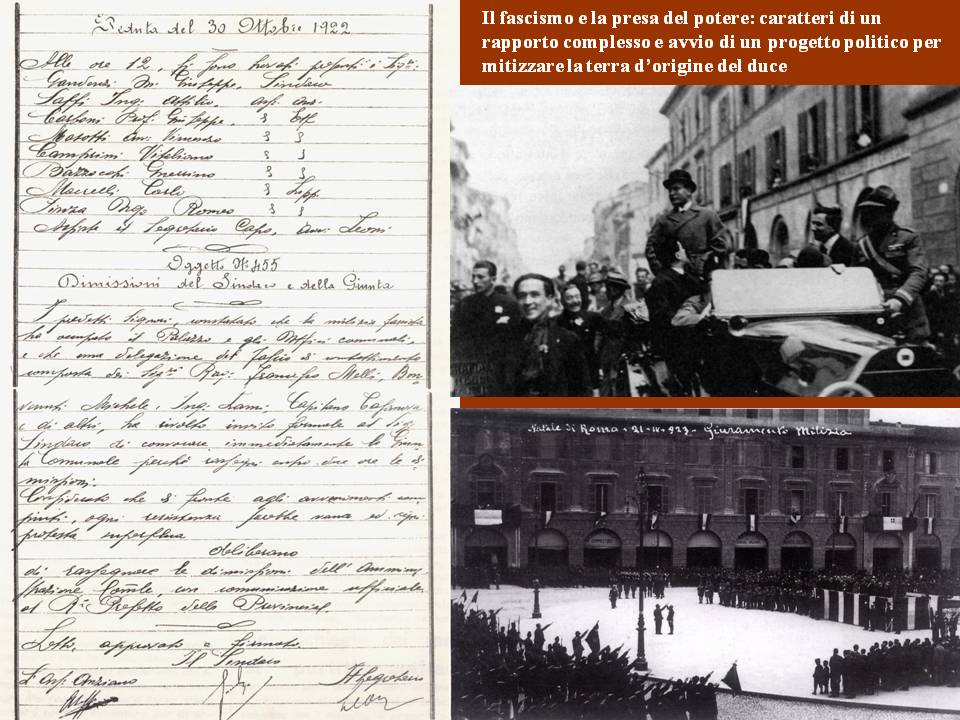 Il fascismo e la presa del potere: caratteri di un
rapporto complesso e avvio di un progetto politico per
mitizzare la terra d'origine del duce
Seduta del 30 Ottobre 1922
Alle ore 12, si sono trovati presenti i Sigri:
Giuseppe, Sindaco
Saffi Ing. Attilio, ass. anz.
Prof. Giuseppe, § Eff.
Masotti Avv. Vincenzo § §
Camprini Vitaliano § §
§ §
Carlo § Supp.
Romeo § §
Assiste il Segretario Capo, Avv. Leoni
Oggetto N° 455
Dimissioni del Sindaco e della Giunta
I predetti Signori, constatato che la milizia fascista
ha occupato il Palazzo e gli Uffici comunali,
e che una delegazione del fascio di combattimento
composta dei Sigri Rag. Francesco Melli, Bon-
Michele, Ing. Capitano
e di altri, ha rivolto invito formale al Sig.
Sindaco di convocare immediatamente la Giun-
ta Comunale perchè rassegni entro due ore le di-
missioni.
Considerato che di fronte agli avvenimenti com-
piuti, ogni resistenza sarebbe vana ed ogni
protesta superflua
deliberano
di rassegnare le dimissioni dell'Ammini-
strazione Com̃le, con comunicazione ufficiale
al R° Prefetto della Provincia.
Letto, approvato e firmato.
Il Sindaco
L'Ass. Anziano Il Segretario
Natale di Roma - 21-IV-923 - Giuramento Milizia